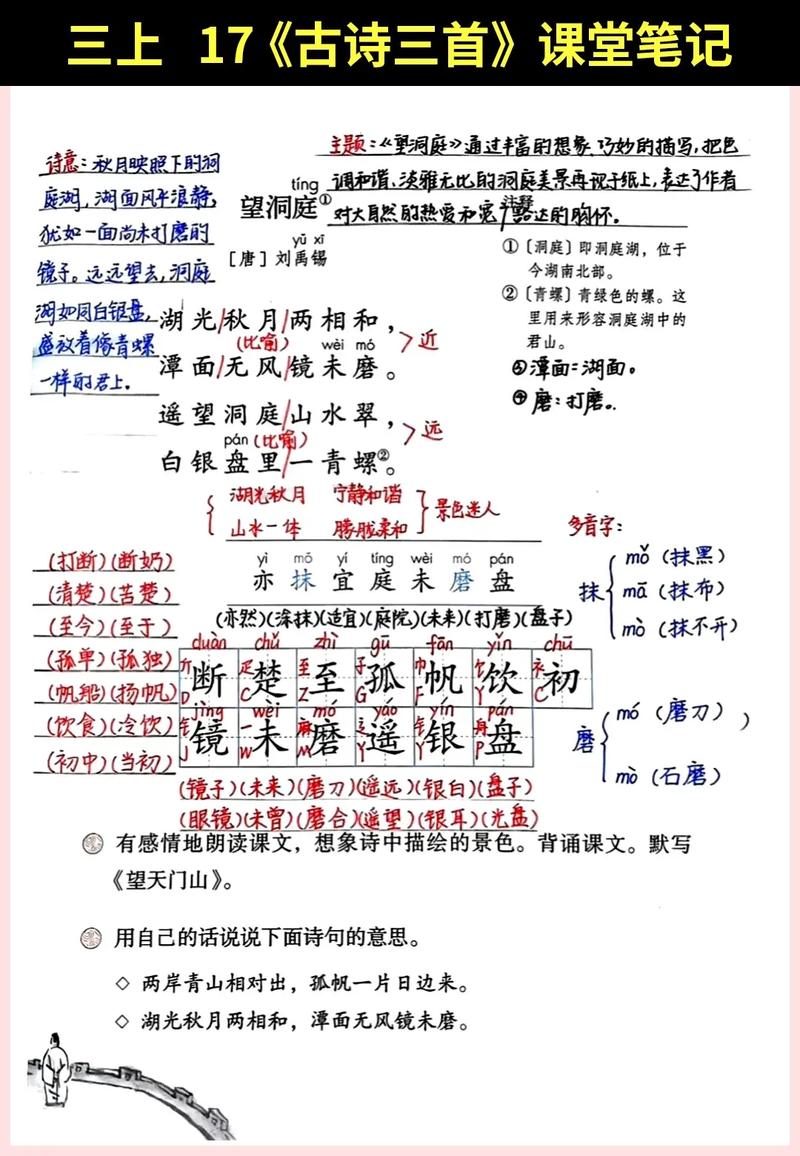 三上 17《古诗三首》课堂笔记
诗意：秋月映照下的洞
庭湖，湖面风平浪静，
犹如一面尚未打磨的
镜子。远远望去，洞庭
湖如同白银盘，
盛放着像青螺
一样的君上。
主题：《望洞庭》通过丰富的想象、巧妙的描写，把色
调和谐、淡雅无比的洞庭美景再现于纸上，表达了作者
对大自然的热爱和宽广豁达的胸怀。
注释
tíng
望洞庭①
yǔ xī
［唐］刘禹锡
①〔洞庭〕即洞庭湖，位于
今湖南北部。
②〔青螺〕青绿色的螺。这
里用来形容洞庭湖中的
君山。
③潭面：湖面。
④磨：打磨。
湖光/秋月/两相和，
(比喻) wèi mó
潭面/无风/镜未磨。
近
遥望洞庭/山水翠，
pán (比喻)
白银盘里/一青螺②。
远
湖光秋月 宁静和谐
山水一体 朦胧柔和
景色迷人
yì mǒ yí tíng wèi mó pán
亦 抹 宜 庭 未 磨 盘
(亦然)(涂抹)(适宜)(庭院)(未来)(打磨)(盘子)
多音字：
抹
mǒ（抹黑）
mā（抹布）
mò（抹不开）
磨
mó（磨刀）
mò（石磨）
(打断)(断奶)
(清楚)(苦楚)
(至今)(至于)
(孤单)(孤独)
(帆船)(扬帆)
(饮食)(冷饮)
(初中)(当初)
duàn chǔ zhì gū fān yǐn chū
斤 疋 至 子 巾 饣 衤
断 楚 至 孤 帆 饮 初
D C Z G F Y C
jìng wèi mó yáo yín pán
钅 一 麻 辶 钅 舟
镜 未 磨 遥 银 盘
J W M Y Y P
(镜子)(未来)(磨刀)(遥远)(银白)(盘子)
(眼镜)(未曾)(磨合)(遥望)(银耳)(光盘)
有感情地朗读课文，想象诗中描绘的景色。背诵课文。默写
《望天门山》。
用自己的话说说下面诗句的意思。
◇ 两岸青山相对出，孤帆一片日边来。
◇ 湖光秋月两相和，潭面无风镜未磨。